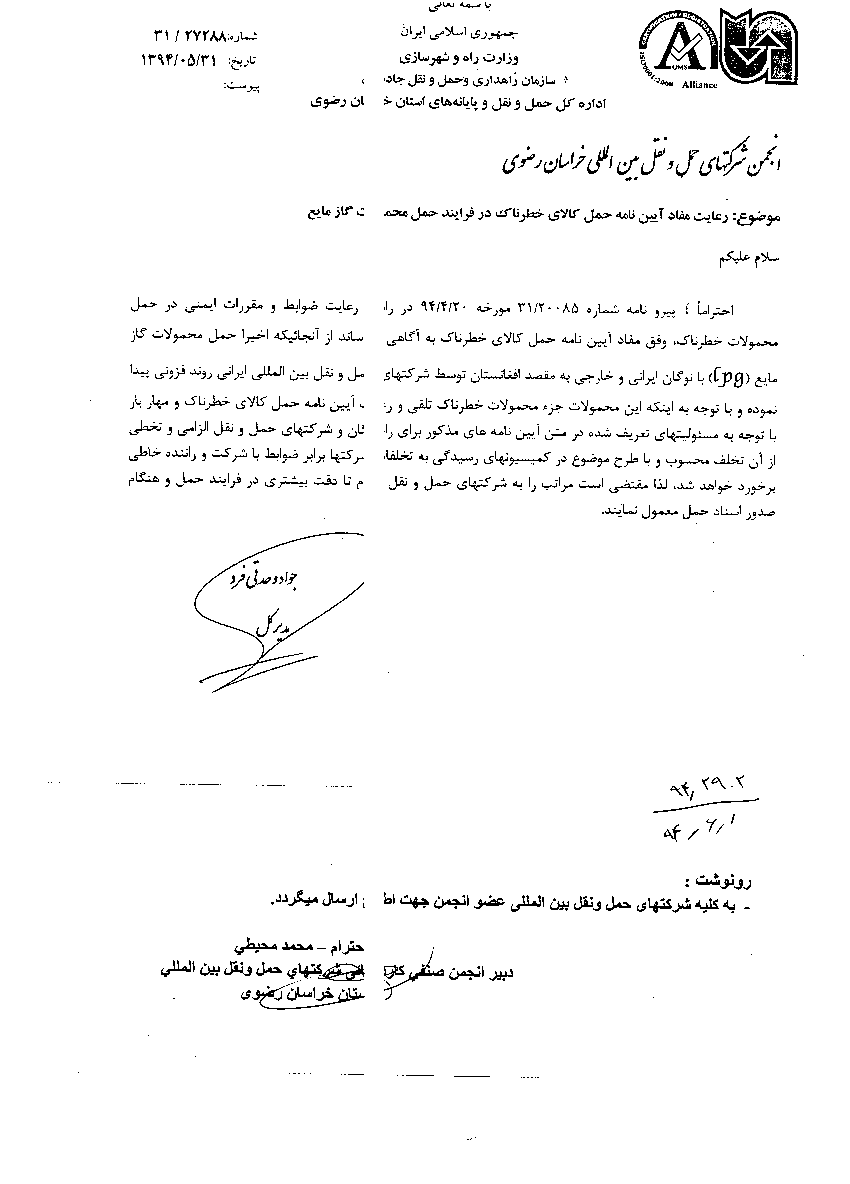 با سمه تعالی
جمهوری اسلامی ایران
وزارت راه و شهرسازی
سازمان راهداری وحمل و نقل جاد
اداره کل حمل و نقل و پایانه‌های استان خ ان رضوی
شماره: ۳۱ / ۲۷۲۸۸
تاریخ: ۱۳۹۴/۰۵/۳۱
پیوست:
Alliance
انجمن شرکتهای حمل و نقل بین المللی خراسان رضوی
موضوع: رعایت مفاد آیین نامه حمل کالای خطرناک در فرایند حمل محصو ت گاز مایع
سلام علیکم
احتراماً ؛ پیرو نامه شماره ۳۱/۲۰۰۸۵ مورخه ۹۴/۴/۲۰ در را رعایت ضوابط و مقررات ایمنی در حمل
محمولات خطرناک، وفق مفاد آیین نامه حمل کالای خطرناک به آگاهی ساند از آنجائیکه اخیرا حمل محمولات گاز
مایع (lpg) با نوگان ایرانی و خارجی به مقصد افغانستان توسط شرکتهای مل و نقل بین المللی ایرانی روند فزونی پیدا
نموده و با توجه به اینکه این محمولات جزء محمولات خطرناک تلقی و ر آیین نامه حمل کالای خطرناک و مهار بار
با توجه به مسئولیتهای تعریف شده در متن آیین نامه های مذکور برای را گان و شرکتهای حمل و نقل الزامی و تخطی
از آن تخلف محسوب و با طرح موضوع در کمیسیونهای رسیدگی به تخلفا رکتها برابر ضوابط با شرکت و راننده خاطی
برخورد خواهد شد، لذا مقتضی است مراتب را به شرکتهای حمل و نقل م تا دقت بیشتری در فرایند حمل و هنگام
صدور اسناد حمل معمول نمایند.
جواد وحدتی فرد
مدیر کل
۹۴٫۲۹۰۲
۹۴/۶/۱
رونوشت :
- به کلیه شرکتهای حمل ونقل بین المللی عضو انجمن جهت اط ارسال میگردد.
حترام – محمد محیطي
دبیر انجمن صنفي کار شرکتهاي حمل ونقل بین المللي
ستان خراسان رضوی